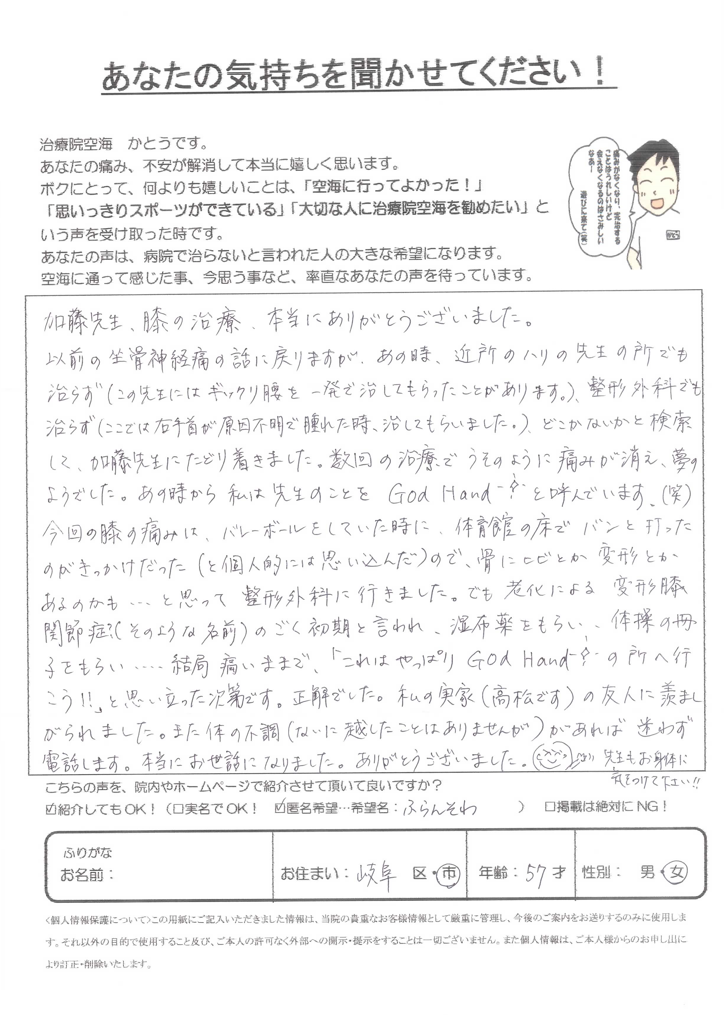 あなたの気持ちを聞かせてください！
治療院空海　かとうです。
あなたの痛み、不安が解消して本当に嬉しく思います。
ボクにとって、何よりも嬉しいことは、「空海に行ってよかった！」
「思いっきりスポーツができている」「大切な人に治療院空海を勧めたい」と
いう声を受け取った時です。
あなたの声は、病院で治らないと言われた人の大きな希望になります。
空海に通って感じた事、今思う事など、率直なあなたの声を待っています。
痛みがなくなり、完治する
ことはうれしいけど
会えなくなるのはさみしい
なあー
遊びに来て（笑）
加藤先生、膝の治療、本当にありがとうございました。
以前の坐骨神経痛の話に戻りますが、あの時、近所のハリの先生の所でも
治らず（この先生にはギックリ腰を一発で治してもらったことがあります。）、整形外科でも
治らず（ここでは右手首が原因不明で腫れた時、治してもらいました。）、どこかないかと検索
して、加藤先生にたどり着きました。数回の治療でうそのように痛みが消え、夢の
ようでした。あの時から私は先生のことを God Hand と呼んでいます。（笑）
今回の膝の痛みは、バレーボールをしていた時に、体育館の床でバンと打った
のがきっかけだった（と個人的には思い込んだ）ので、骨にヒビとか変形とか
あるのかも…と思って整形外科に行きました。でも老化による変形膝
関節症?（そのような名前）のごく初期と言われ、湿布薬をもらい、体操の冊
子をもらい……結局痛いままで、「これはやっぱり God Hand の所へ行
こう!!」と思い立った次第です。正解でした。私の実家（高松です）の友人に羨まし
がられました。また体の不調（ないに越したことはありませんが）があれば迷わず
電話します。本当にお世話になりました。ありがとうございました。先生もお身体に
気をつけて下さい!!
こちらの声を、院内やホームページで紹介させて頂いて良いですか？
☑紹介してもOK！（□実名でOK！　☑匿名希望…希望名：ふらんそわ　）　□掲載は絶対にNG！
ふりがな
お名前：　お住まい：岐阜　区・市　年齢：57才　性別：　男・女
〈個人情報保護について〉この用紙にご記入いただきました情報は、当院の貴重なお客様情報として厳重に管理し、今後のご案内をお送りするのみに使用しま
す。それ以外の目的で使用すること及び、ご本人の許可なく外部への開示・提示をすることは一切ございません。また個人情報は、ご本人様からのお申し出に
より訂正・削除いたします。